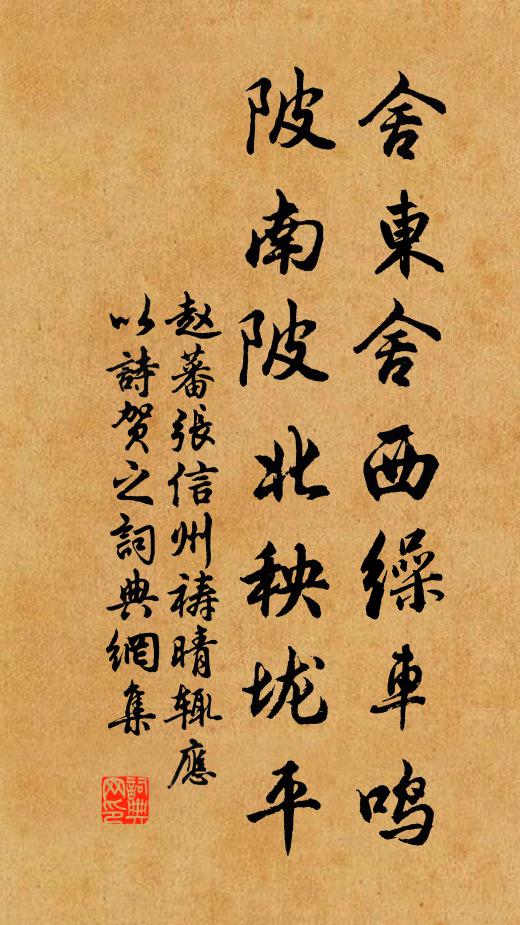 舍東舍西缲車鳴
陂南陂北秧垅平
赵蕃張信州祷晴辄應
以詩贺之詞典網集
詞典
网印